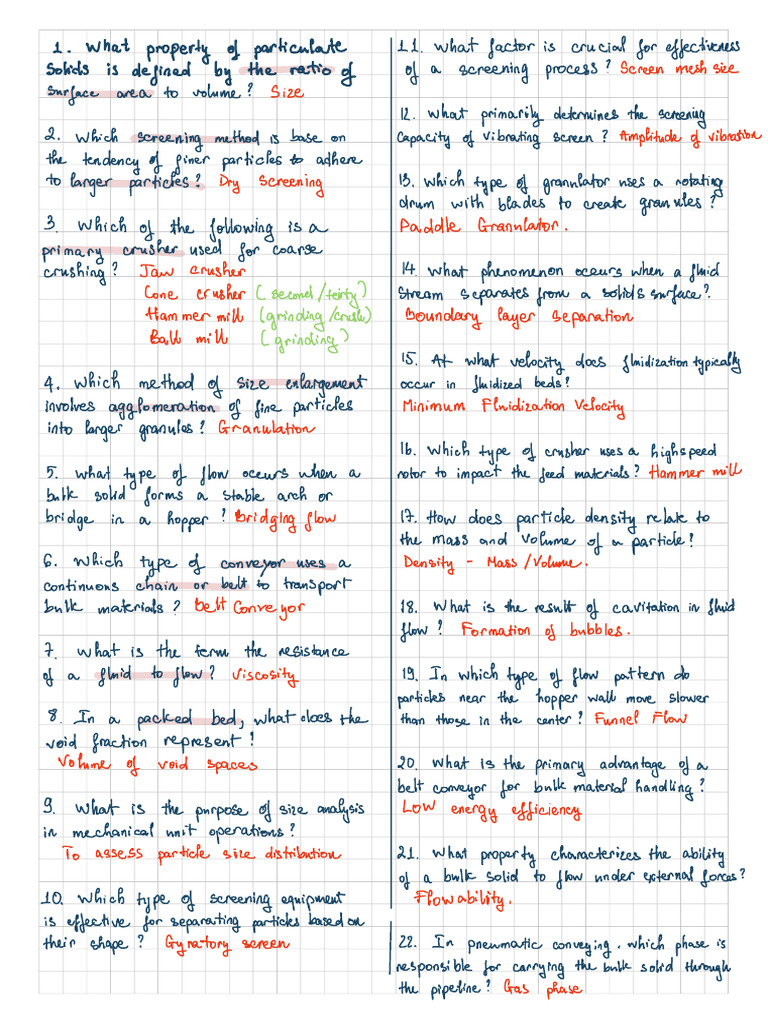 1. What property of particulate
solids is defined by the ratio of
surface area to volume? Size
2. Which screening method is base on
the tendency of finer particles to adhere
to larger particles? Dry Screening
3. Which of the following is a
primary crusher used for coarse
crushing? Jaw crusher
Cone crusher (second/teirty)
Hammer mill (grinding/crush)
Ball mill (grinding)
4. Which method of size enlargement
involves agglomeration of fine particles
into larger granules? Granulation
5. What type of flow occurs when a
bulk solid forms a stable arch or
bridge in a hopper? Bridging flow
6. Which type of conveyor uses a
continuous chain or belt to transport
bulk materials? Belt Conveyor
7. What is the term the resistance
of a fluid to flow? Viscosity
8. In a packed bed, what does the
void fraction represent?
Volume of void spaces
9. What is the purpose of size analysis
in mechanical unit operations?
To assess particle size distribution
10. Which type of screening equipment
is effective for separating particles based on
their shape? Gyratory screen
11. What factor is crucial for effectiveness
of a screening process? Screen mesh size
12. What primarily determines the screening
capacity of vibrating screen? Amplitude of vibration
13. Which type of granulator uses a rotating
drum with blades to create granules?
Paddle Granulator.
14. What phenomenon occurs when a fluid
stream separates from a solids surface?
Boundary layer separation
15. At what velocity does fluidization typically
occur in fluidized beds?
Minimum Fluidization Velocity
16. Which type of crusher uses a highspeed
rotor to impact the feed materials? Hammer mill
17. How does particle density relate to
the mass and volume of a particle?
Density - Mass/Volume.
18. What is the result of cavitation in fluid
flow? Formation of bubbles.
19. In which type of flow pattern do
particles near the hopper wall move slower
than those in the center? Funnel Flow
20. What is the primary advantage of a
belt conveyor for bulk material handling?
Low energy efficiency
21. What property characterizes the ability
of a bulk solid to flow under external forces?
Flowability.
22. In pneumatic conveying. which phase is
responsible for carrying the bulk solid through
the pipeline? Gas phase